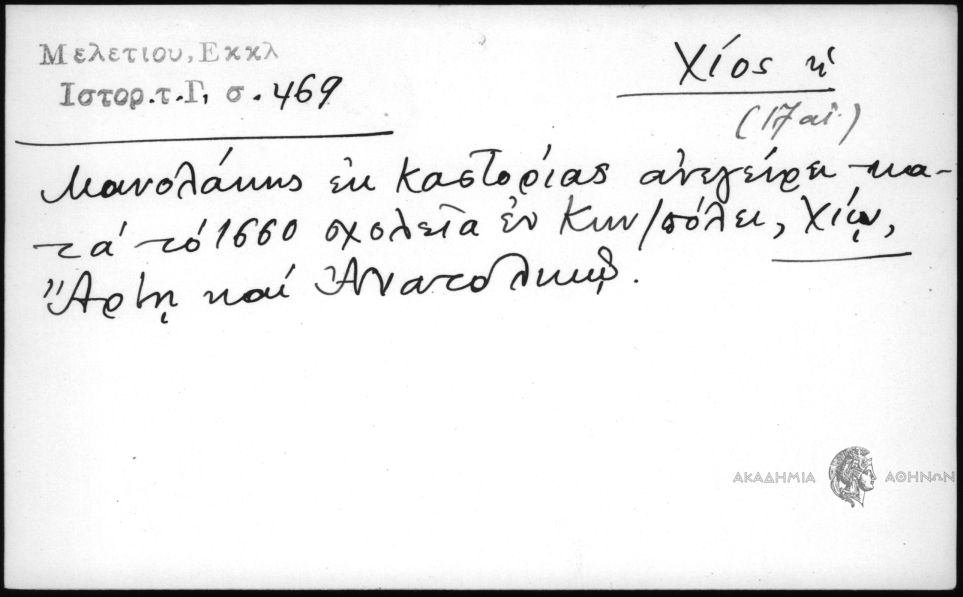 Μελετιου, Εκκλ
Ιστορ.τ.Γ, σ. 469
Χίος ἡ
(17 αἰ.)
Μανολάκης ἐκ Καστορίας ἀνεγείρει κα-
τά τό 1660 σχολεῖα ἐν Κων/πόλει, Χίῳ,
Ἄρτῃ καί Ἀνατολικῷ.
ΑΚΑΔΗΜΙΑ ΑΘΗΝΩΝ